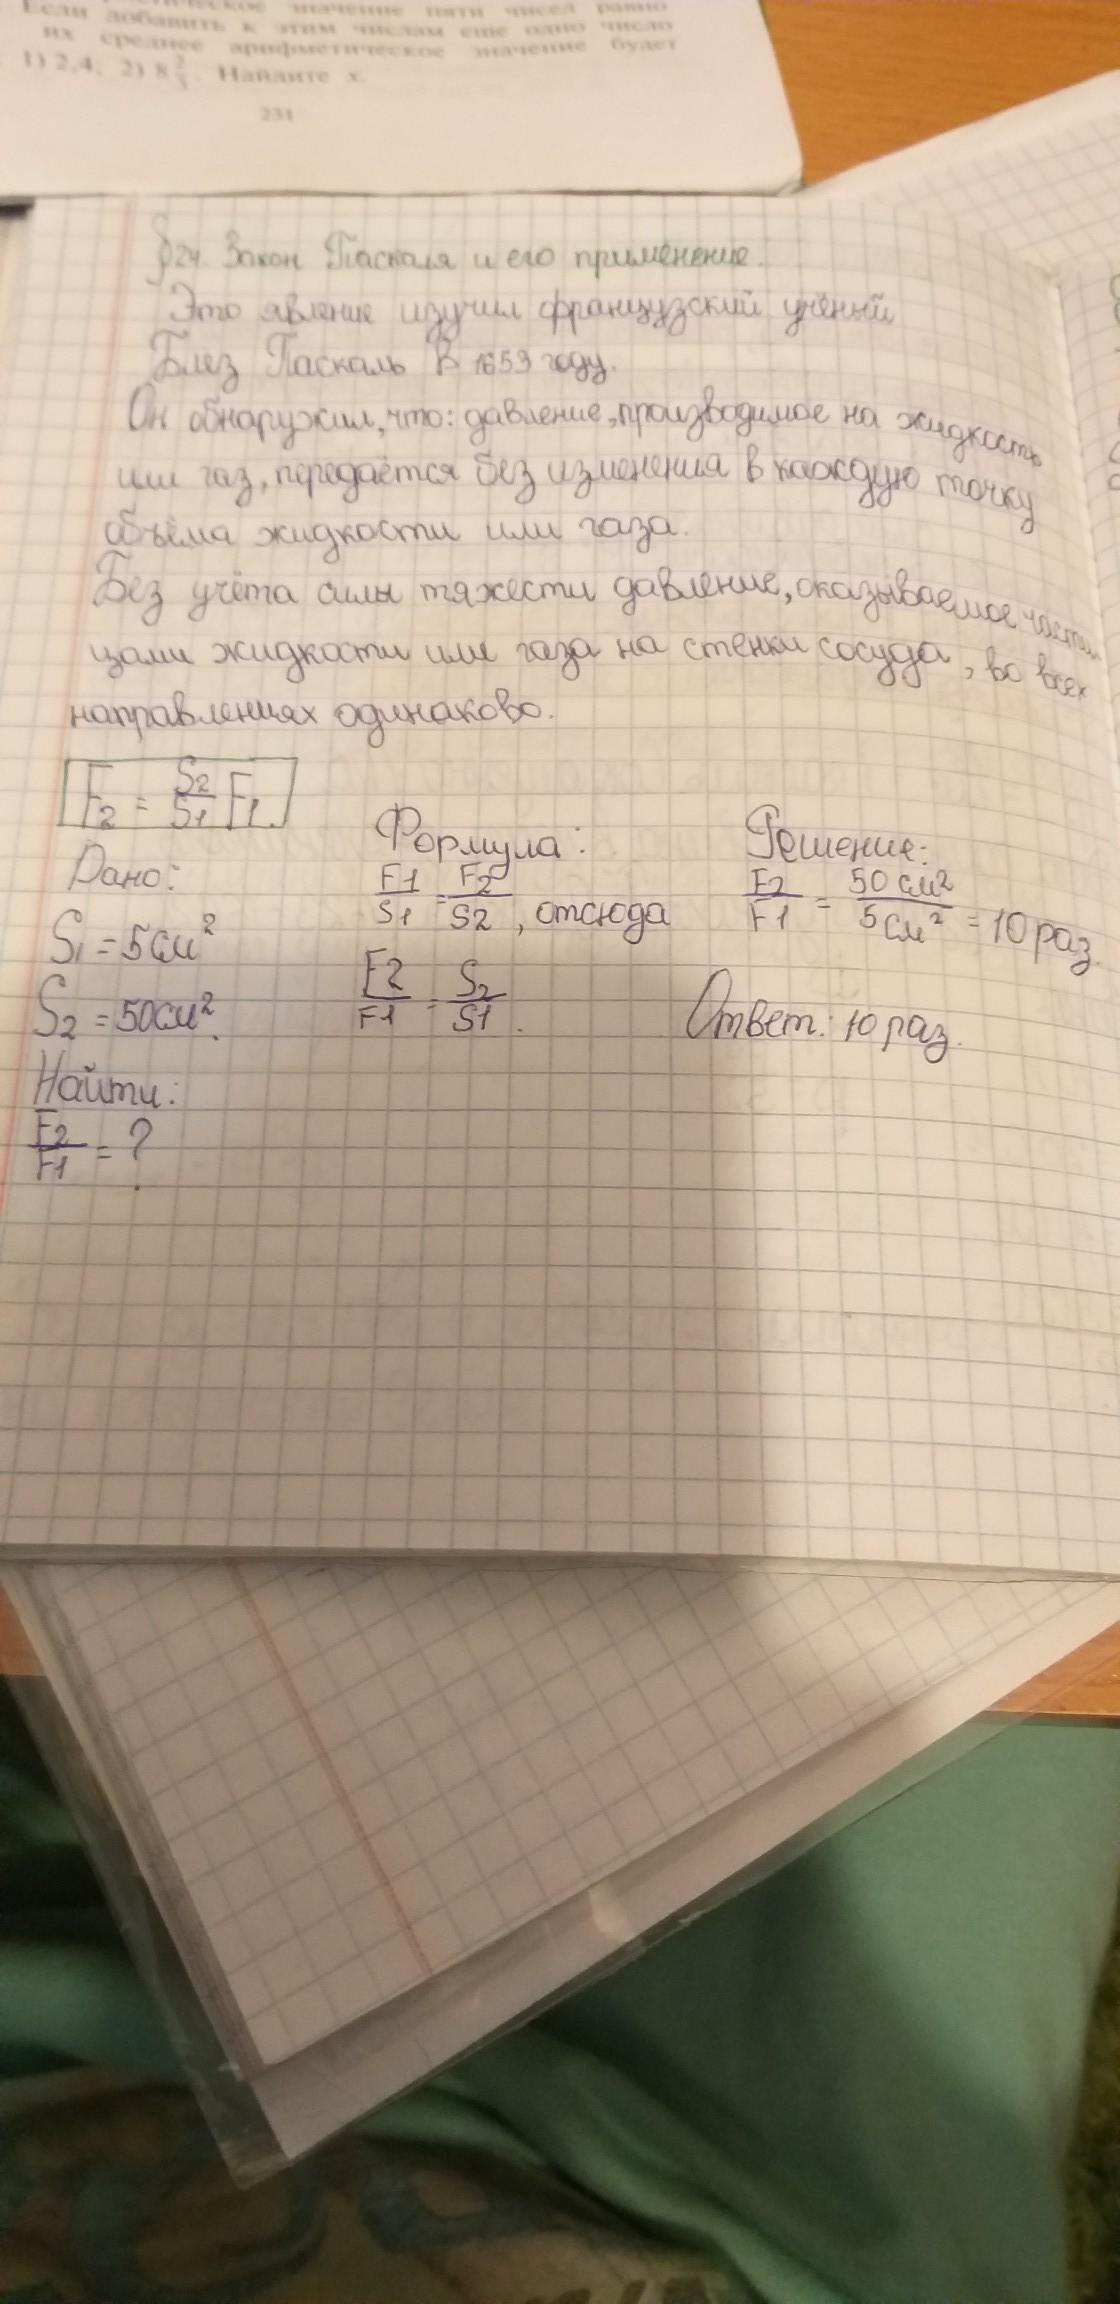 ическое значение пяти чисел равно
Если добавить к этим числам еще одно число
их среднее арифметическое значение будет
1) 2,4; 2) 8 2/3. Найдите x.
231
§24. Закон Паскаля и его применение.
Это явление изучил французский учёный
Блез Паскаль в 1653 году.
Он обнаружил, что: давление, производимое на жидкость
или газ, передаётся без изменения в каждую точку
объёма жидкости или газа.
Без учёта силы тяжести давление, оказываемое части
цами жидкости или газа на стенки сосуда, во всех
направлениях одинаково.
F2 = S2/S1 F1.
Дано:
S1 = 5см²
S2 = 50см².
Найти:
F2/F1 = ?
Формула:
F1/S1 = F2/S2, отсюда
F2/F1 = S2/S1.
Решение:
F2/F1 = 50 см²/5см² = 10 раз.
Ответ: 10 раз.